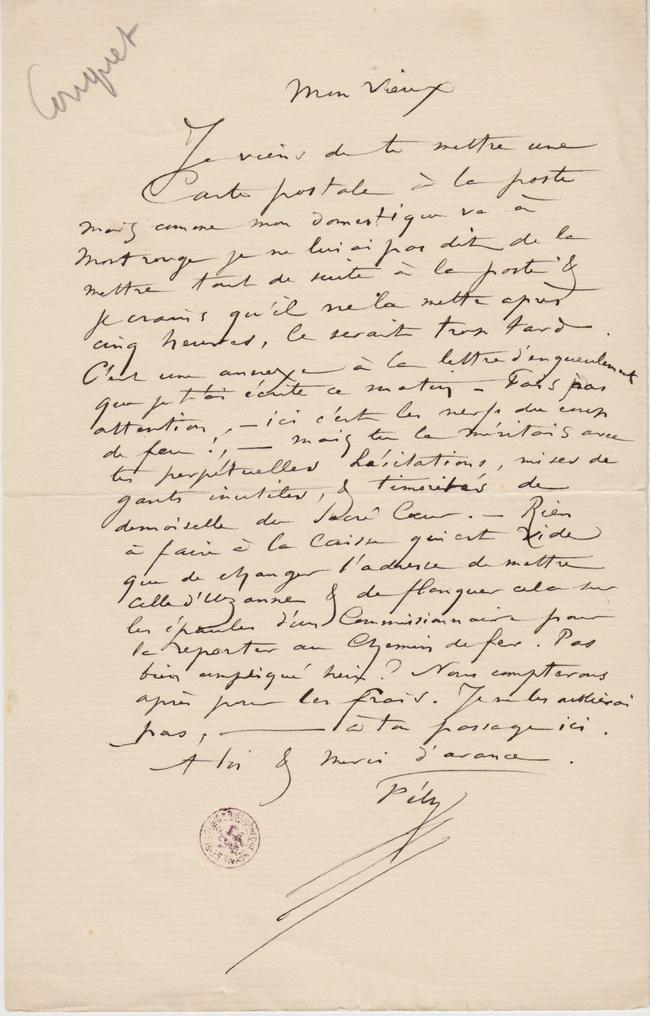 Conquet
Mon Vieux
Je viens de te mettre une
Carte postale à la poste
mais comme mon domestique va à
Montrouge je ne lui ai pas dit de la
mettre tout de suite à la poste &
je crains qu'il ne la mette après
cinq heures, ce serait trop tard.
C'est une annexe à la lettre d'engueulement
que je t'ai écrite ce matin – Fais pas
attention, – ici c'est les nerfs du coup
de feu !, – mais tu le méritais avec
tes perpétuelles hésitations, mises de
gants inutiles, & timorités de
demoiselle du Sacré Cœur. – Rien
à faire à la Caisse qui est vide
que de changer l'adresse de mettre
celle d'Uzanne & de flanquer cela sur
les épaules d'un Commissionnaire pour
la reporter au Chemin de fer. Pas
bien compliqué hein ? Nous compterons
après pour les frais. Je ne les oublierai
pas, — à ton passage ici.
A toi & merci d'avance.
Fély